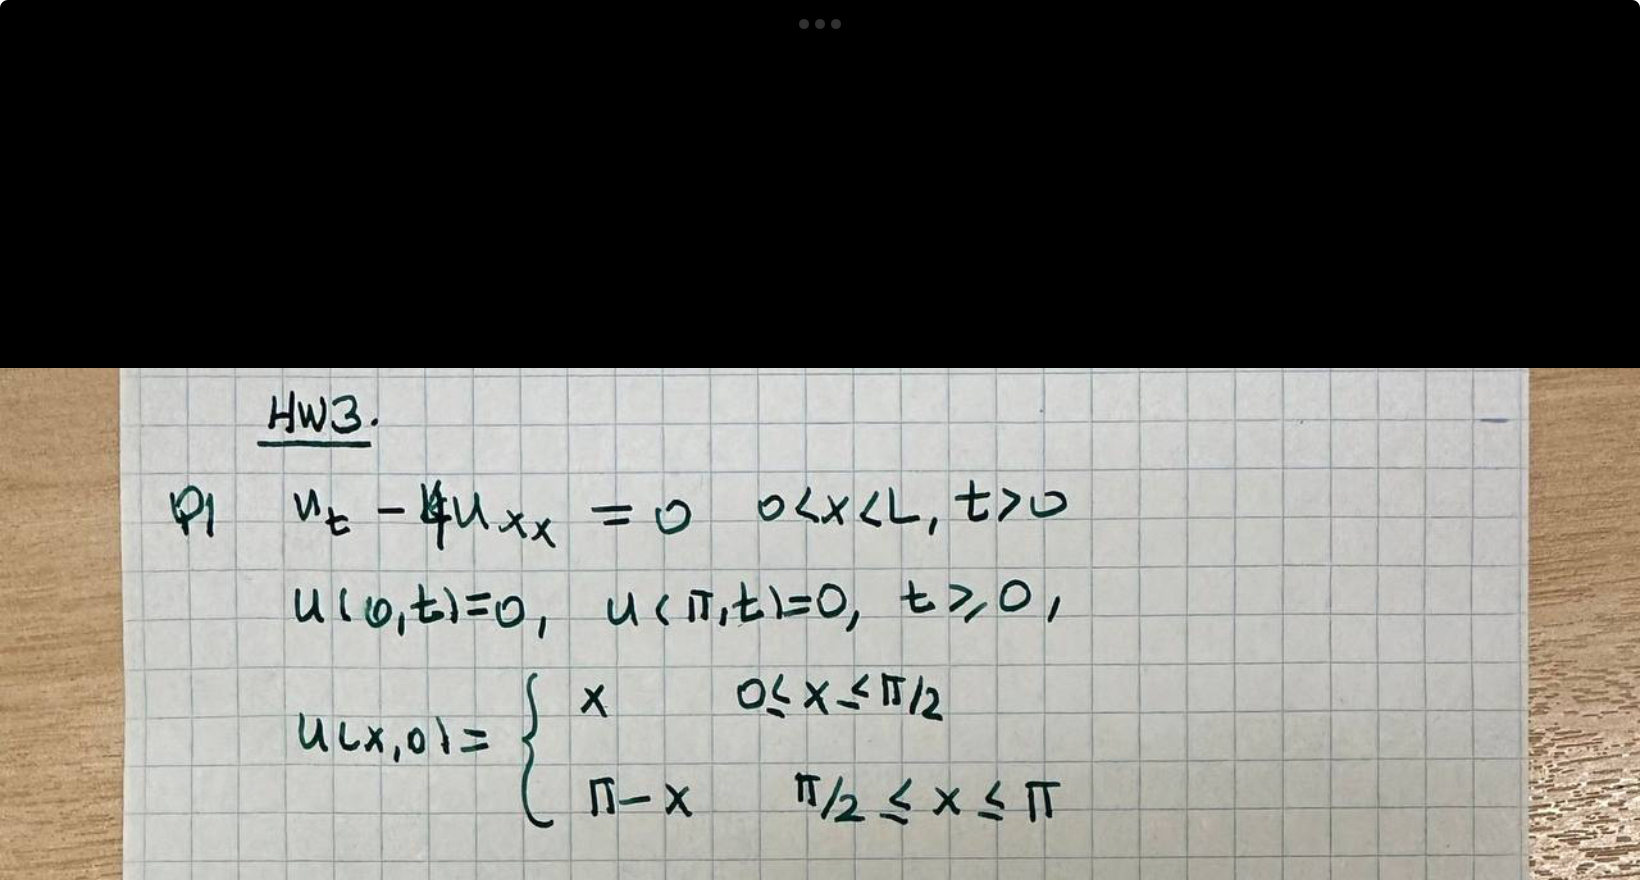 HW3.
P1 u_t - 4u_xx = 0 0<x<L, t>0
u(0,t)=0, u(π,t)=0, t≥0,
u(x,0)= { x 0≤x≤π/2
π-x π/2≤x≤π